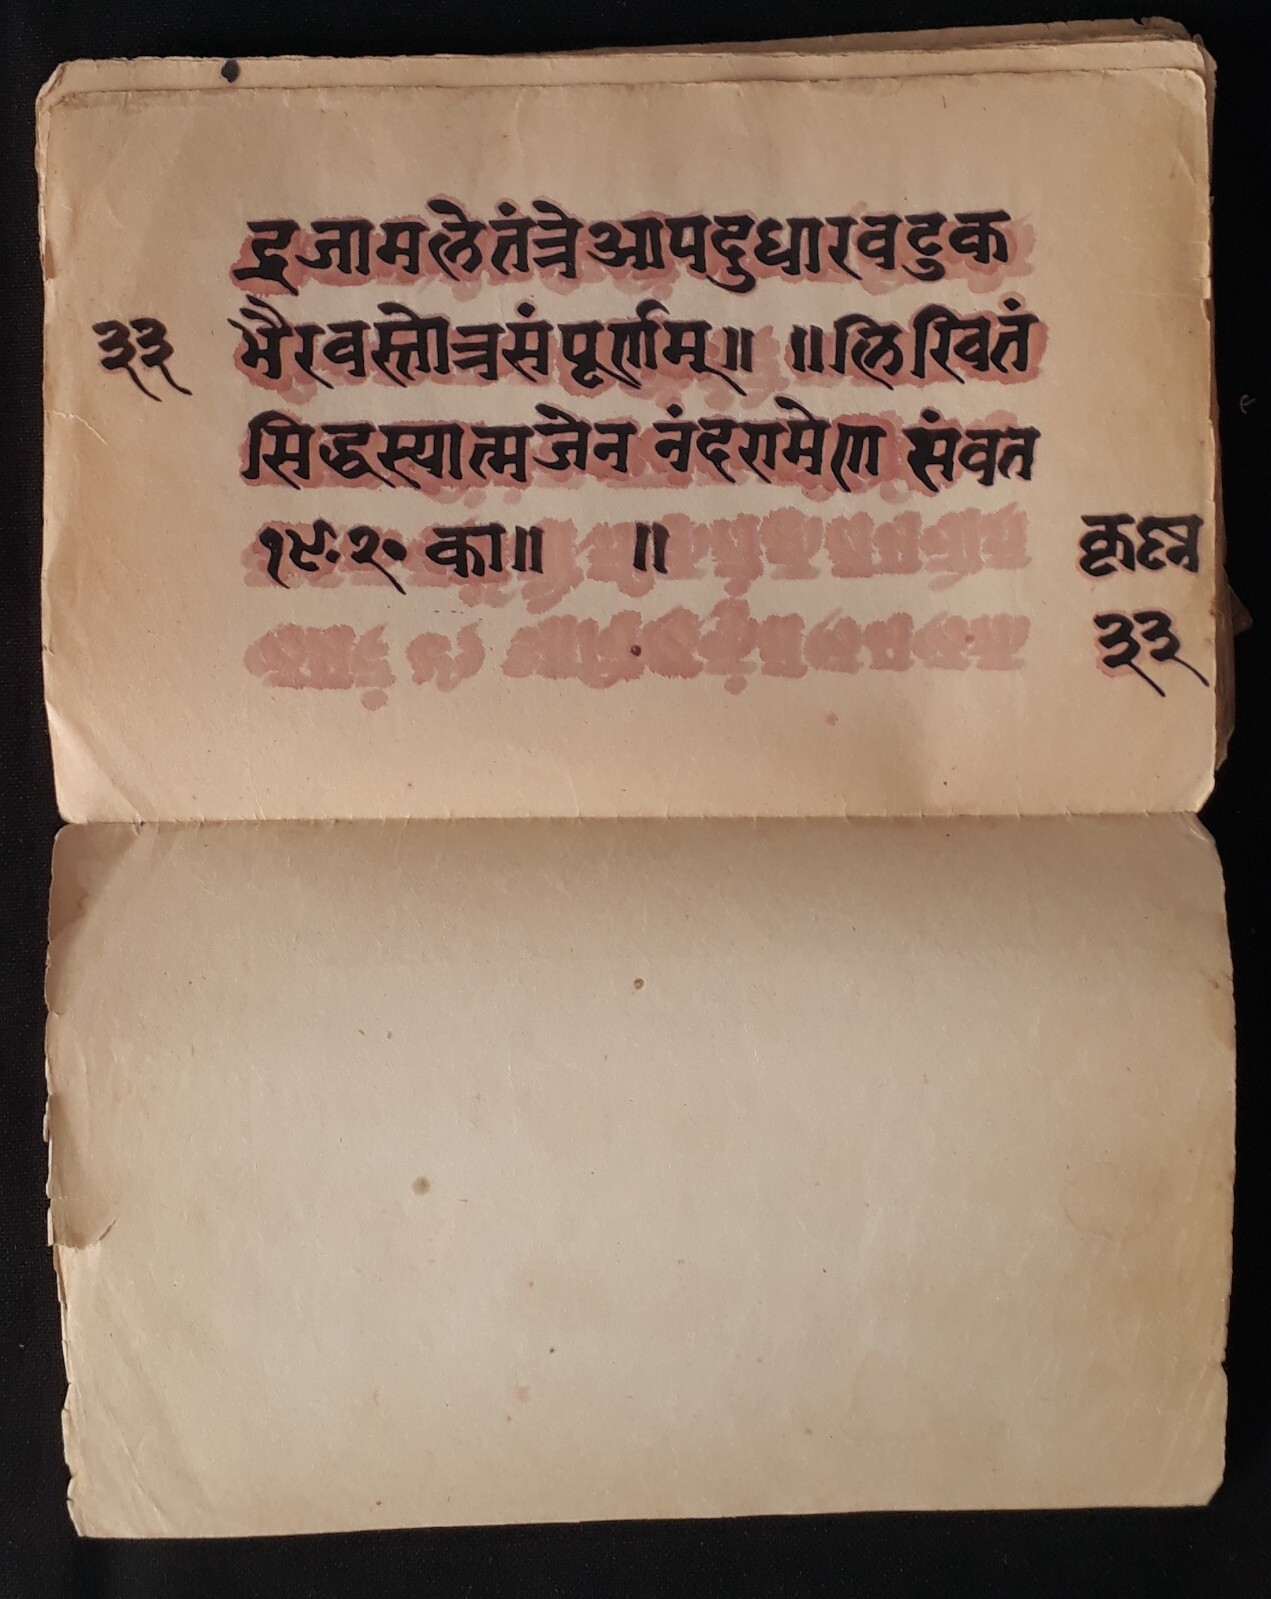 द्रजामलेतंत्रेआपदुधारवटुक
३३ भैरवस्तोत्रसंपूर्णम्॥ ॥लिखितं
सिद्धस्यात्मजेन नंदरामेण संवत
१९२० का॥ ॥
कृष्न
३३